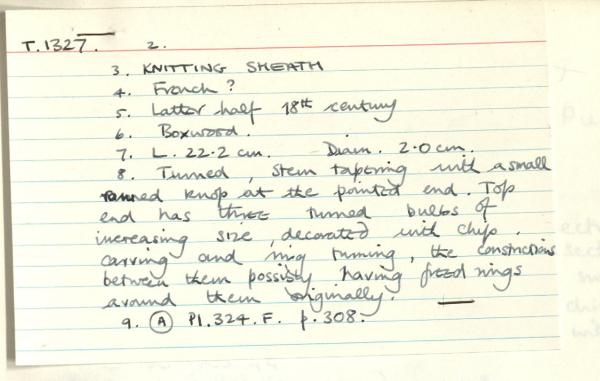 T.1327. 2.
3. KNITTING SHEATH
4. French ?
5. Latter half 18th century
6. Boxwood.
7. L. 22.2 cm. Diam. 2.0 cm.
8. Turned, stem tapering with a small
turned knop at the pointed end. Top
end has three turned bulbs of
increasing size, decorated with chip
carving and ring turning, the constrictions
between them possibly having fixed rings
around them originally.
9. (A) Pl. 324. F. p. 308.